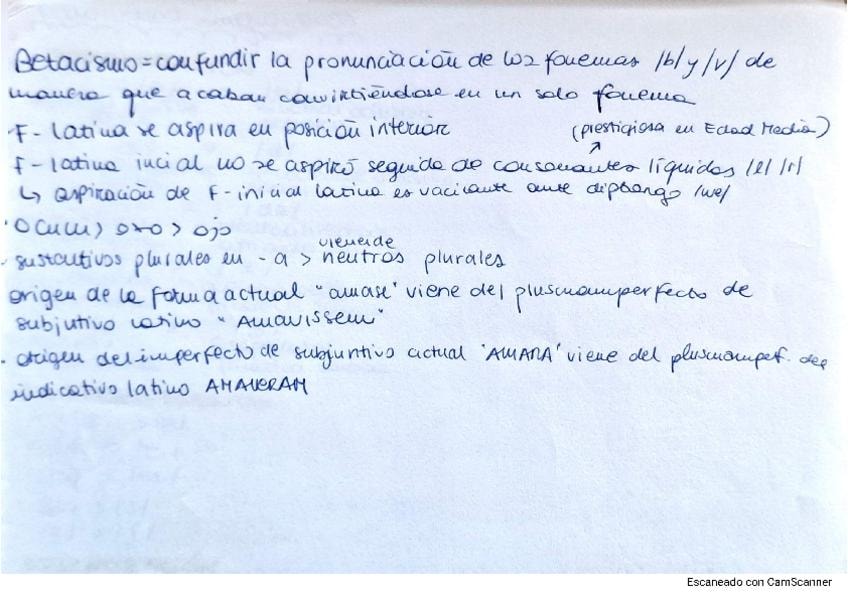 Betacismo = confundir la pronunciación de los fonemas /b/ y /v/ de
manera que acaban convirtiéndose en un solo fonema
F- latina se aspira en posición interior (prestigiosa en Edad Media)
F- latina incial no se aspiró seguida de consonantes líquidas /l/ /r/
↳ aspiración de F- inicial latina es vacilante ante diptongo /we/
· OCULUM > oxo > ojo
viene de
- sustantivos plurales en -a > neutros plurales
origen de la forma actual "amase" viene del pluscuamperfecto de
subjutivo latino "AMAVISSEM"
- origen del imperfecto de subjuntivo actual 'AMARA' viene del pluscuampef. del
indicativo latino AMAVERAM
Escaneado con CamScanner